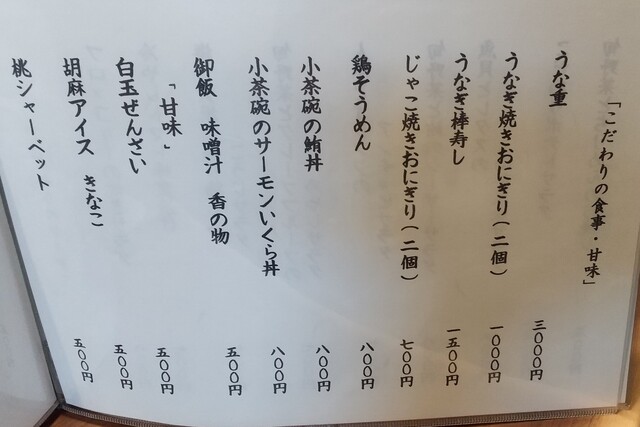 「こだわりの食事・甘味」
うな重　三〇〇〇円
うなぎ焼きおにぎり（二個）　一〇〇〇円
うなぎ棒寿し　一五〇〇円
じゃこ焼きおにぎり（二個）　七〇〇円
鶏そうめん　八〇〇円
小茶碗の鮪丼　八〇〇円
小茶碗のサーモンいくら丼　八〇〇円
御飯　味噌汁　香の物　五〇〇円
「甘味」
白玉ぜんざい　五〇〇円
胡麻アイス　きなこ　五〇〇円
桃シャーベット　五〇〇円